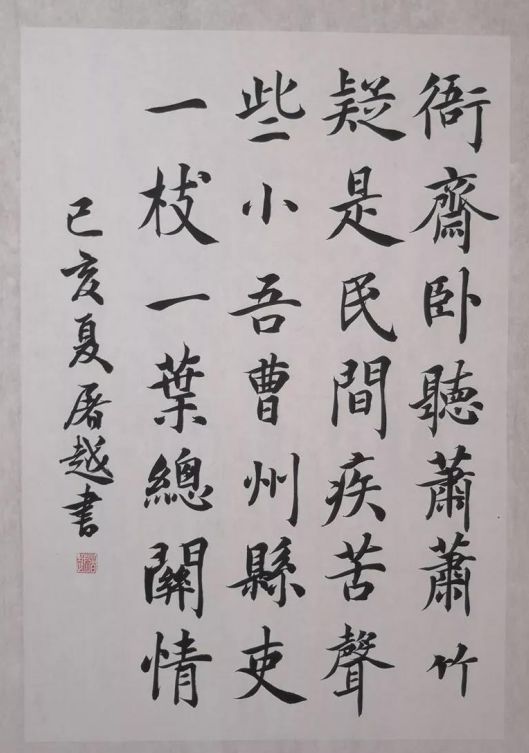 衙齋卧聽蕭蕭竹
疑是民間疾苦聲
些小吾曹州縣吏
一枝一葉總關情
己亥夏屠越書